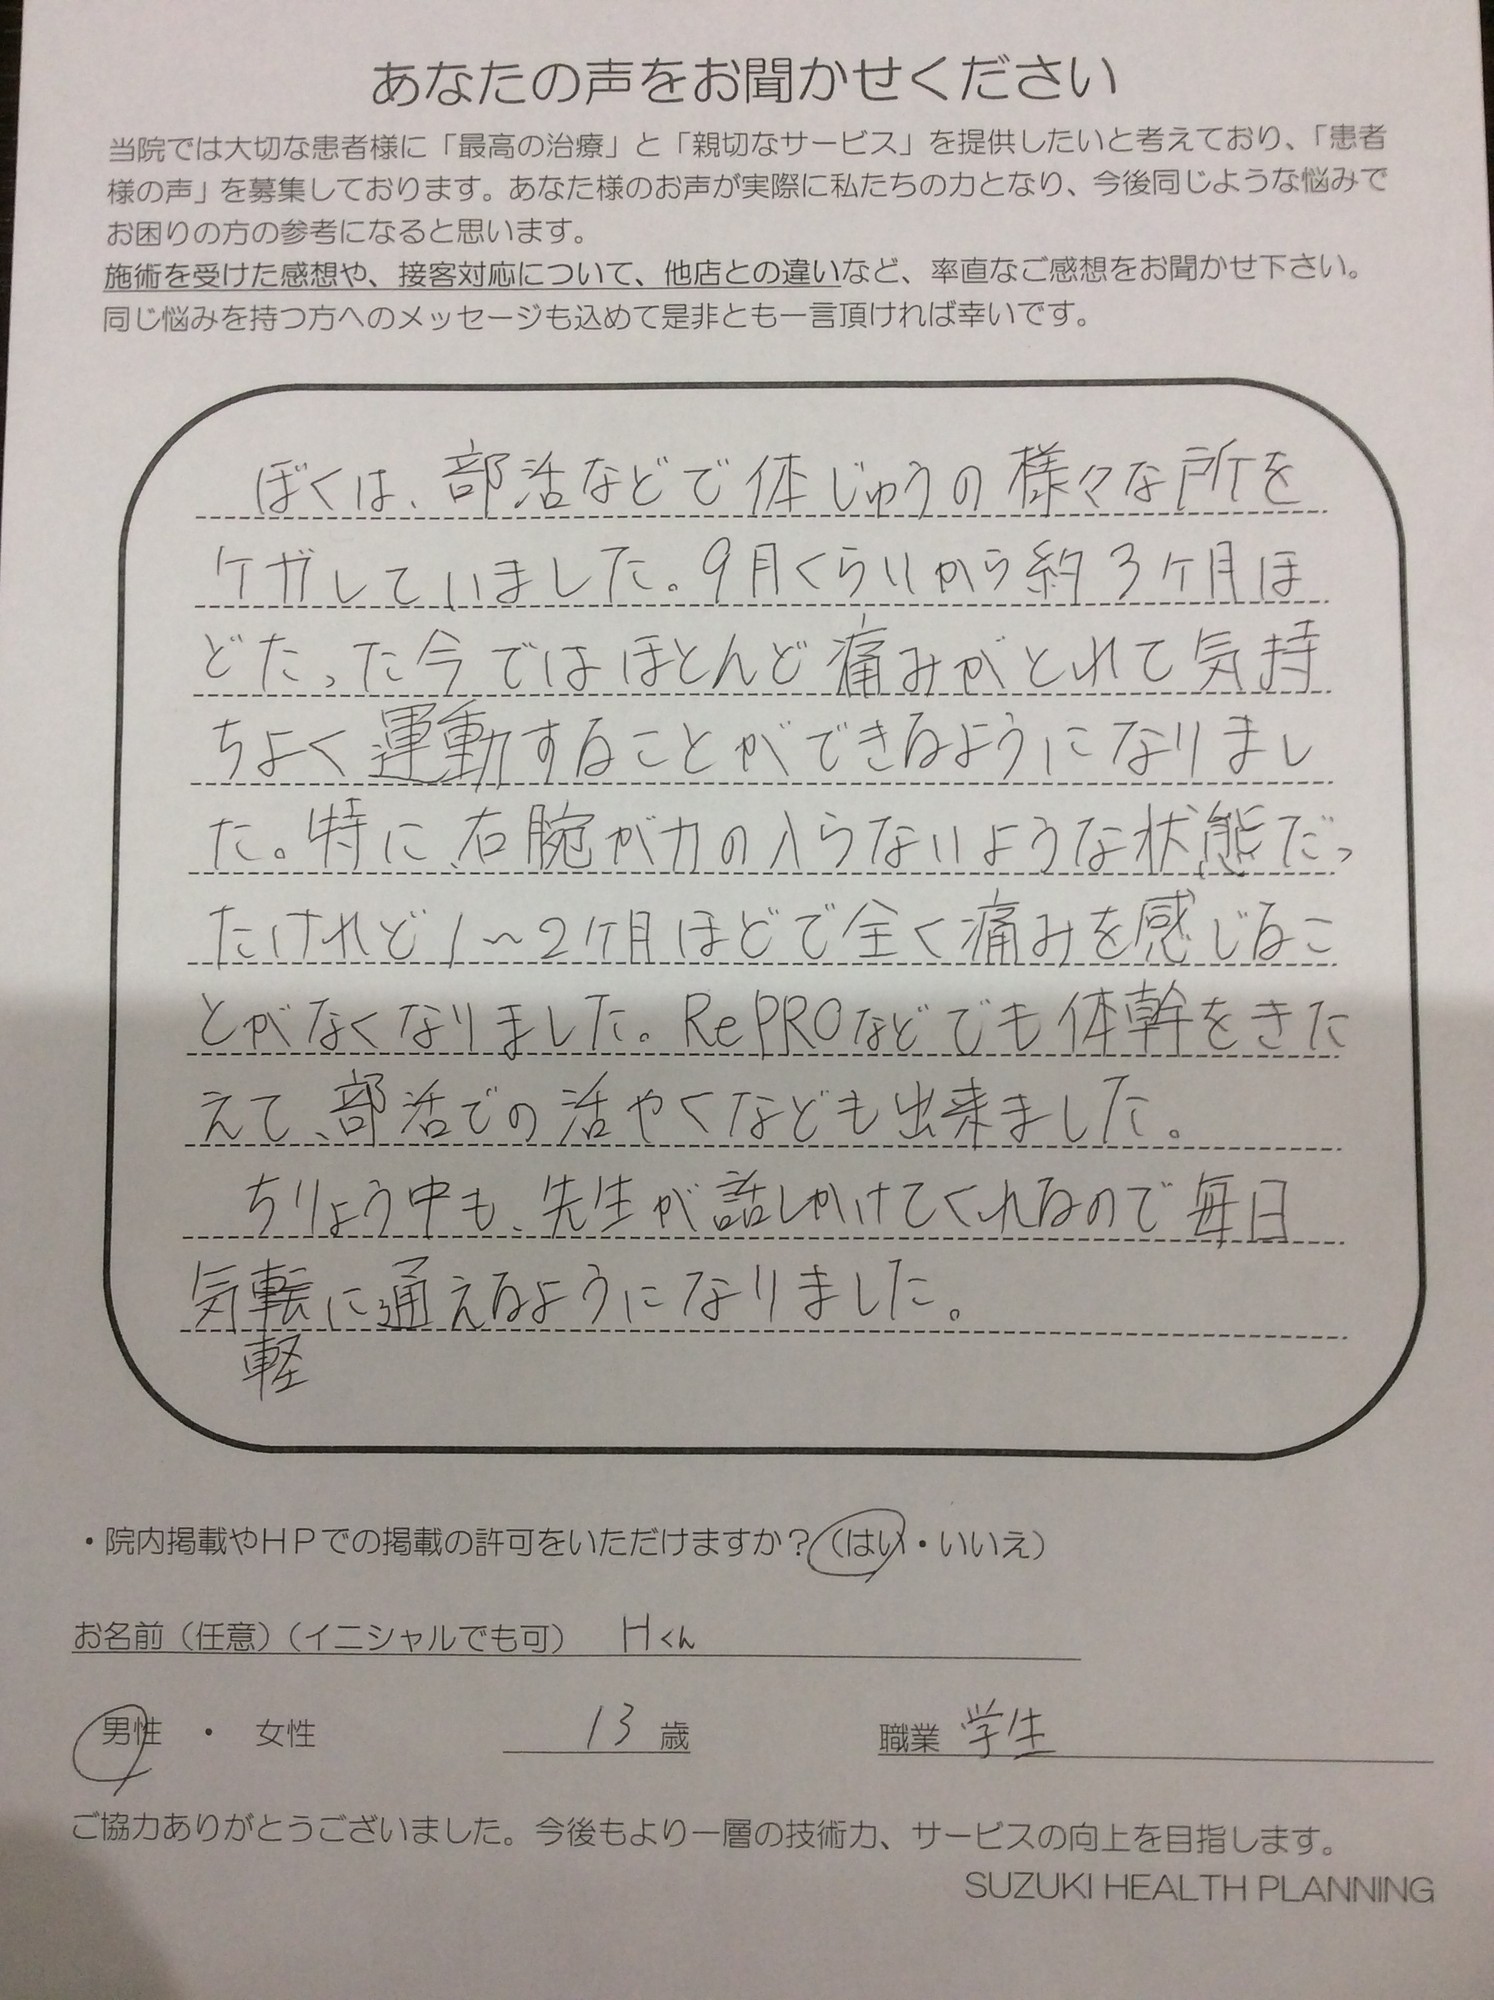 あなたの声をお聞かせください
当院では大切な患者様に「最高の治療」と「親切なサービス」を提供したいと考えており、「患者
様の声」を募集しております。あなた様のお声が実際に私たちの力となり、今後同じような悩みで
お困りの方の参考になると思います。
施術を受けた感想や、接客対応について、他店との違いなど、率直なご感想をお聞かせ下さい。
同じ悩みを持つ方へのメッセージも込めて是非とも一言頂ければ幸いです。
ぼくは、部活などで体じゅうの様々な所を
ケガしていました。9月くらいから約3ヶ月ほ
どたった今ではほとんど痛みがとれて気持
ちよく運動することができるようになりまし
た。特に、右腕が力の入らないような状態だっ
たけれど1〜2ヶ月ほどで全く痛みを感じるこ
とがなくなりました。RePROなどでも体幹をきた
えて、部活での活やくなども出来ました。
ちりょう中も、先生が話しかけてくれるので毎日
気転に通えるようになりました。
軽
・院内掲載やHPでの掲載の許可をいただけますか?(はい・いいえ)
お名前(任意)(イニシャルでも可) Hくん
男性 ・ 女性 13歳 職業 学生
ご協力ありがとうございました。今後もより一層の技術力、サービスの向上を目指します。
SUZUKI HEALTH PLANNING